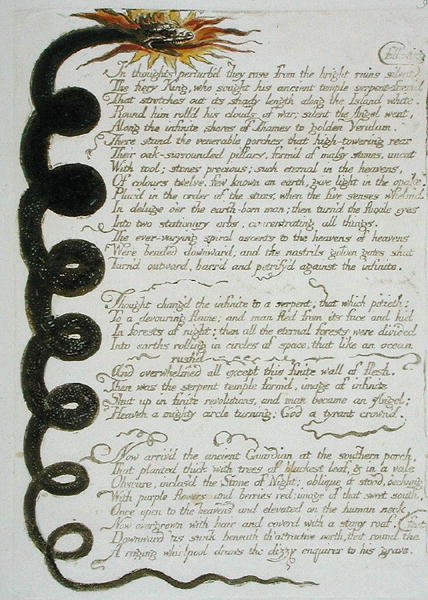 In thoughts perturb'd they rose from the bright ruins silent
The fiery King, who sought his ancient temple serpent-form'd
That stretches out its shady length along the Island white.
Round him roll'd his clouds of war; silent the Angel went,
Along the infinite shores of Thames to golden Verulam.
There stand the venerable porches that high-towering rear
Their oak-surrounded pillars, form'd of massy stones, uncut
With tool; stones precious; such eternal in the heavens,
Of colours twelve, few known on earth, give light in the opake,
Plac'd in the order of the stars, when the five senses whelm'd
In deluge o'er the earth-born man; then turn'd the fluxile eyes
Into two stationary orbs, concentrating all things.
The ever-varying spiral ascents to the heavens of heavens
Were bended downward, and the nostrils golden gates shut
Turn'd outward, barr'd and petrify'd against the infinite.
Thought chang'd the infinite to a serpent; that which pitieth:
To a devouring flame; and man fled from its face and hid
In forests of night; then all the eternal forests were divided
Into earths rolling in circles of space, that like an ocean
rush'd
And overwhelmed all except this finite wall of flesh.
Then was the serpent temple form'd, image of infinite
Shut up in finite revolutions, and man became an Angel;
Heaven a mighty circle turning; God a tyrant crown'd.
Now arriv'd the ancient Guardian at the southern porch,
That planted thick with trees of blackest leaf, & in a vale
Obscure, inclos'd the Stone of Night; oblique it stood, o'erhung
With purple flowers and berries red; image of that sweet south,
Once open to the heavens and elevated on the human neck,
Now overgrown with hair and coverd with a stony roof,
Downward 'tis sunk beneath th' attractive north, that round the feet
A raging whirlpool draws the dizzy enquirer to his grave.